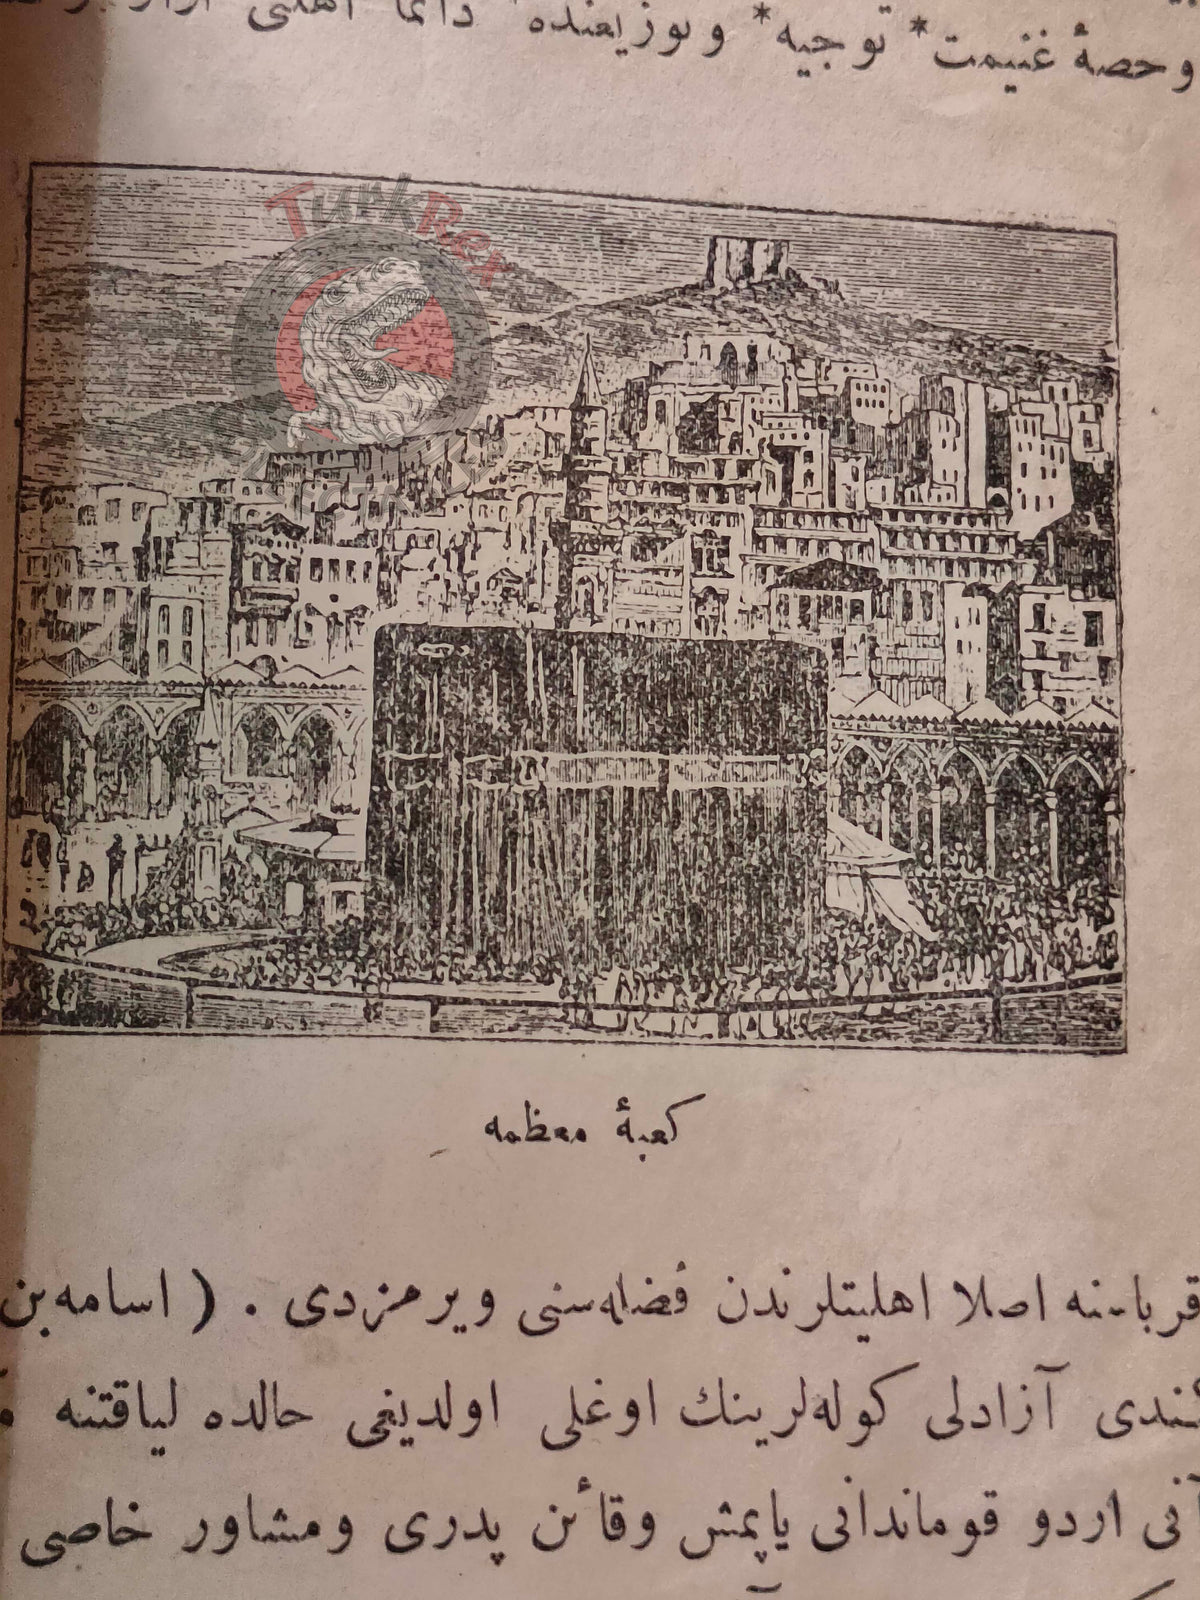 وحصهٔ غنیمت* توجیه* وتوزیعنده دائما اهلنی
TurkRex
كعبهٔ معظمه
اصلا اهلیتلرندن فضله‌سنی ویرمزدی . ( اسامه بن
آزادلی كوله‌لرینك اوغلی اولدیغی حالده لیاقتنه
آنی اردو قوماندانی یاپمش وقائن پدری ومشاور خاصی